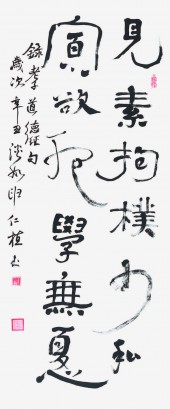 見素抱樸少私
寡欲絕學無憂
錄老子道德經句
歲次辛丑